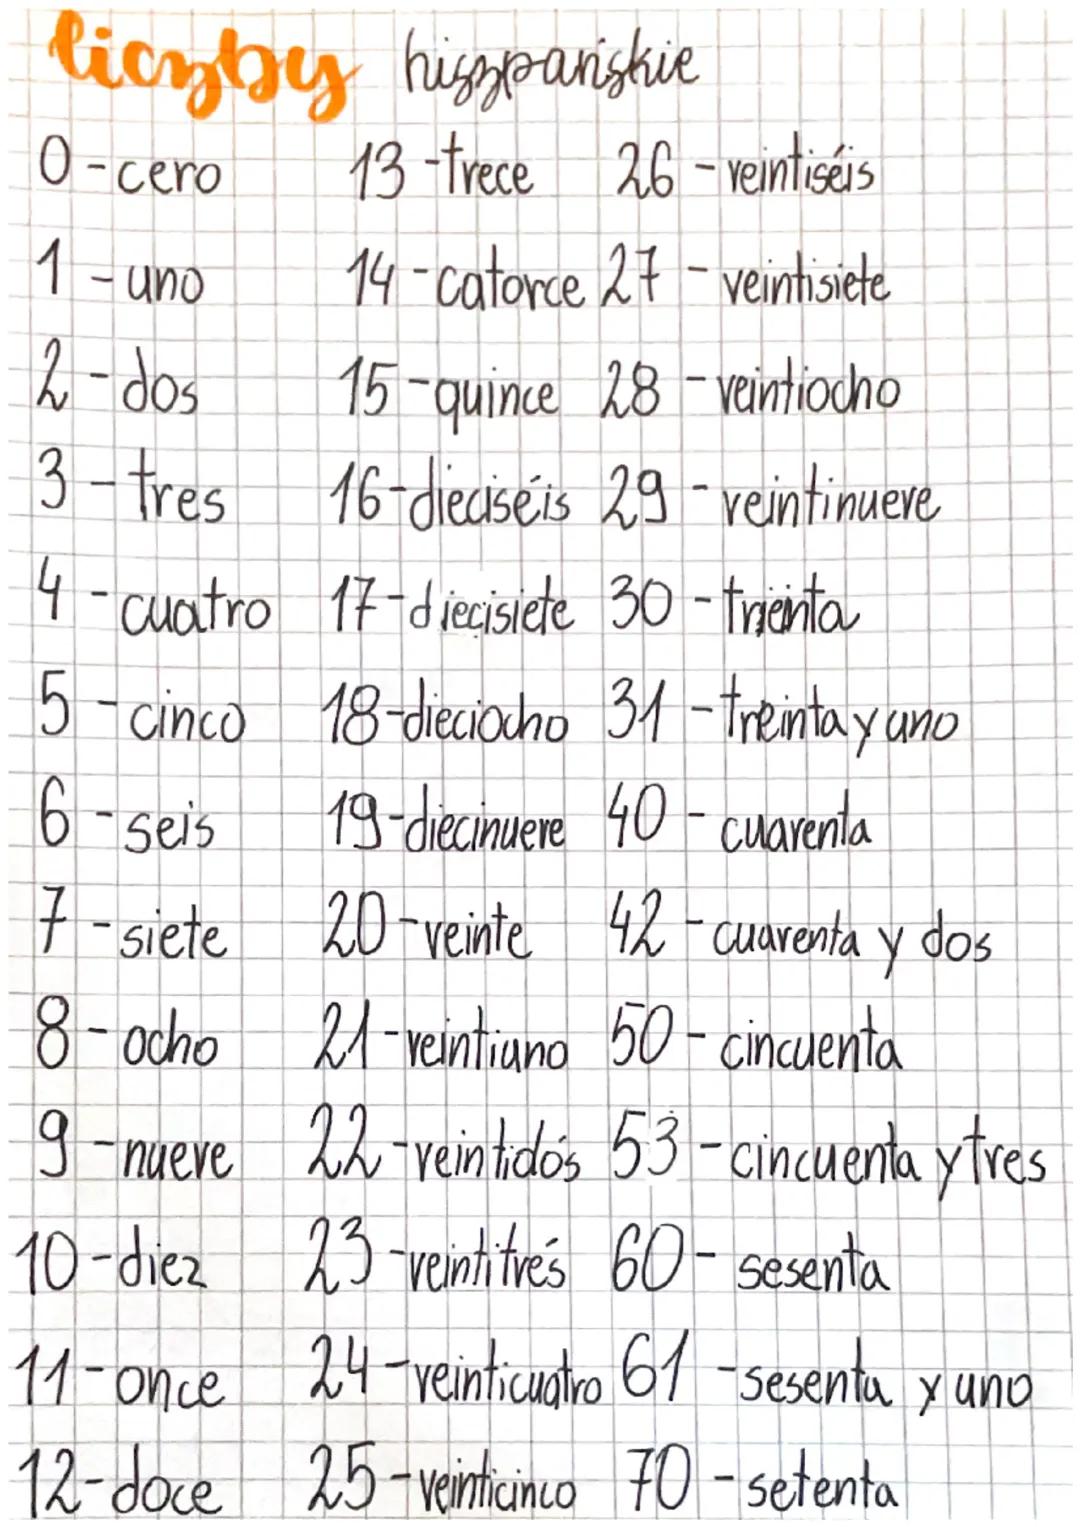 liczby hiszpańskie
0 - cero 13 - trece 26 - veintiséis
1 - uno 14 - catorce 27 - veintisiete
2 - dos 15 - quince 28 - veintiocho
3 - tres 16 - dieciséis 29 - veintinueve
4 - cuatro 17 - diecisiete 30 - treinta
5 - cinco 18 - dieciocho 31 - treinta y uno
6 - seis 19 - diecinueve 40 - cuarenta
7 - siete 20 - veinte 42 - cuarenta y dos
8 - ocho 21 - veintiuno 50 - cincuenta
9 - nueve 22 - veintidós 53 - cincuenta y tres
10 - diez 23 - veintitrés 60 - sesenta
11 - once 24 - veinticuatro 61 - sesenta y uno
12 - doce 25 - veinticinco 70 - setenta